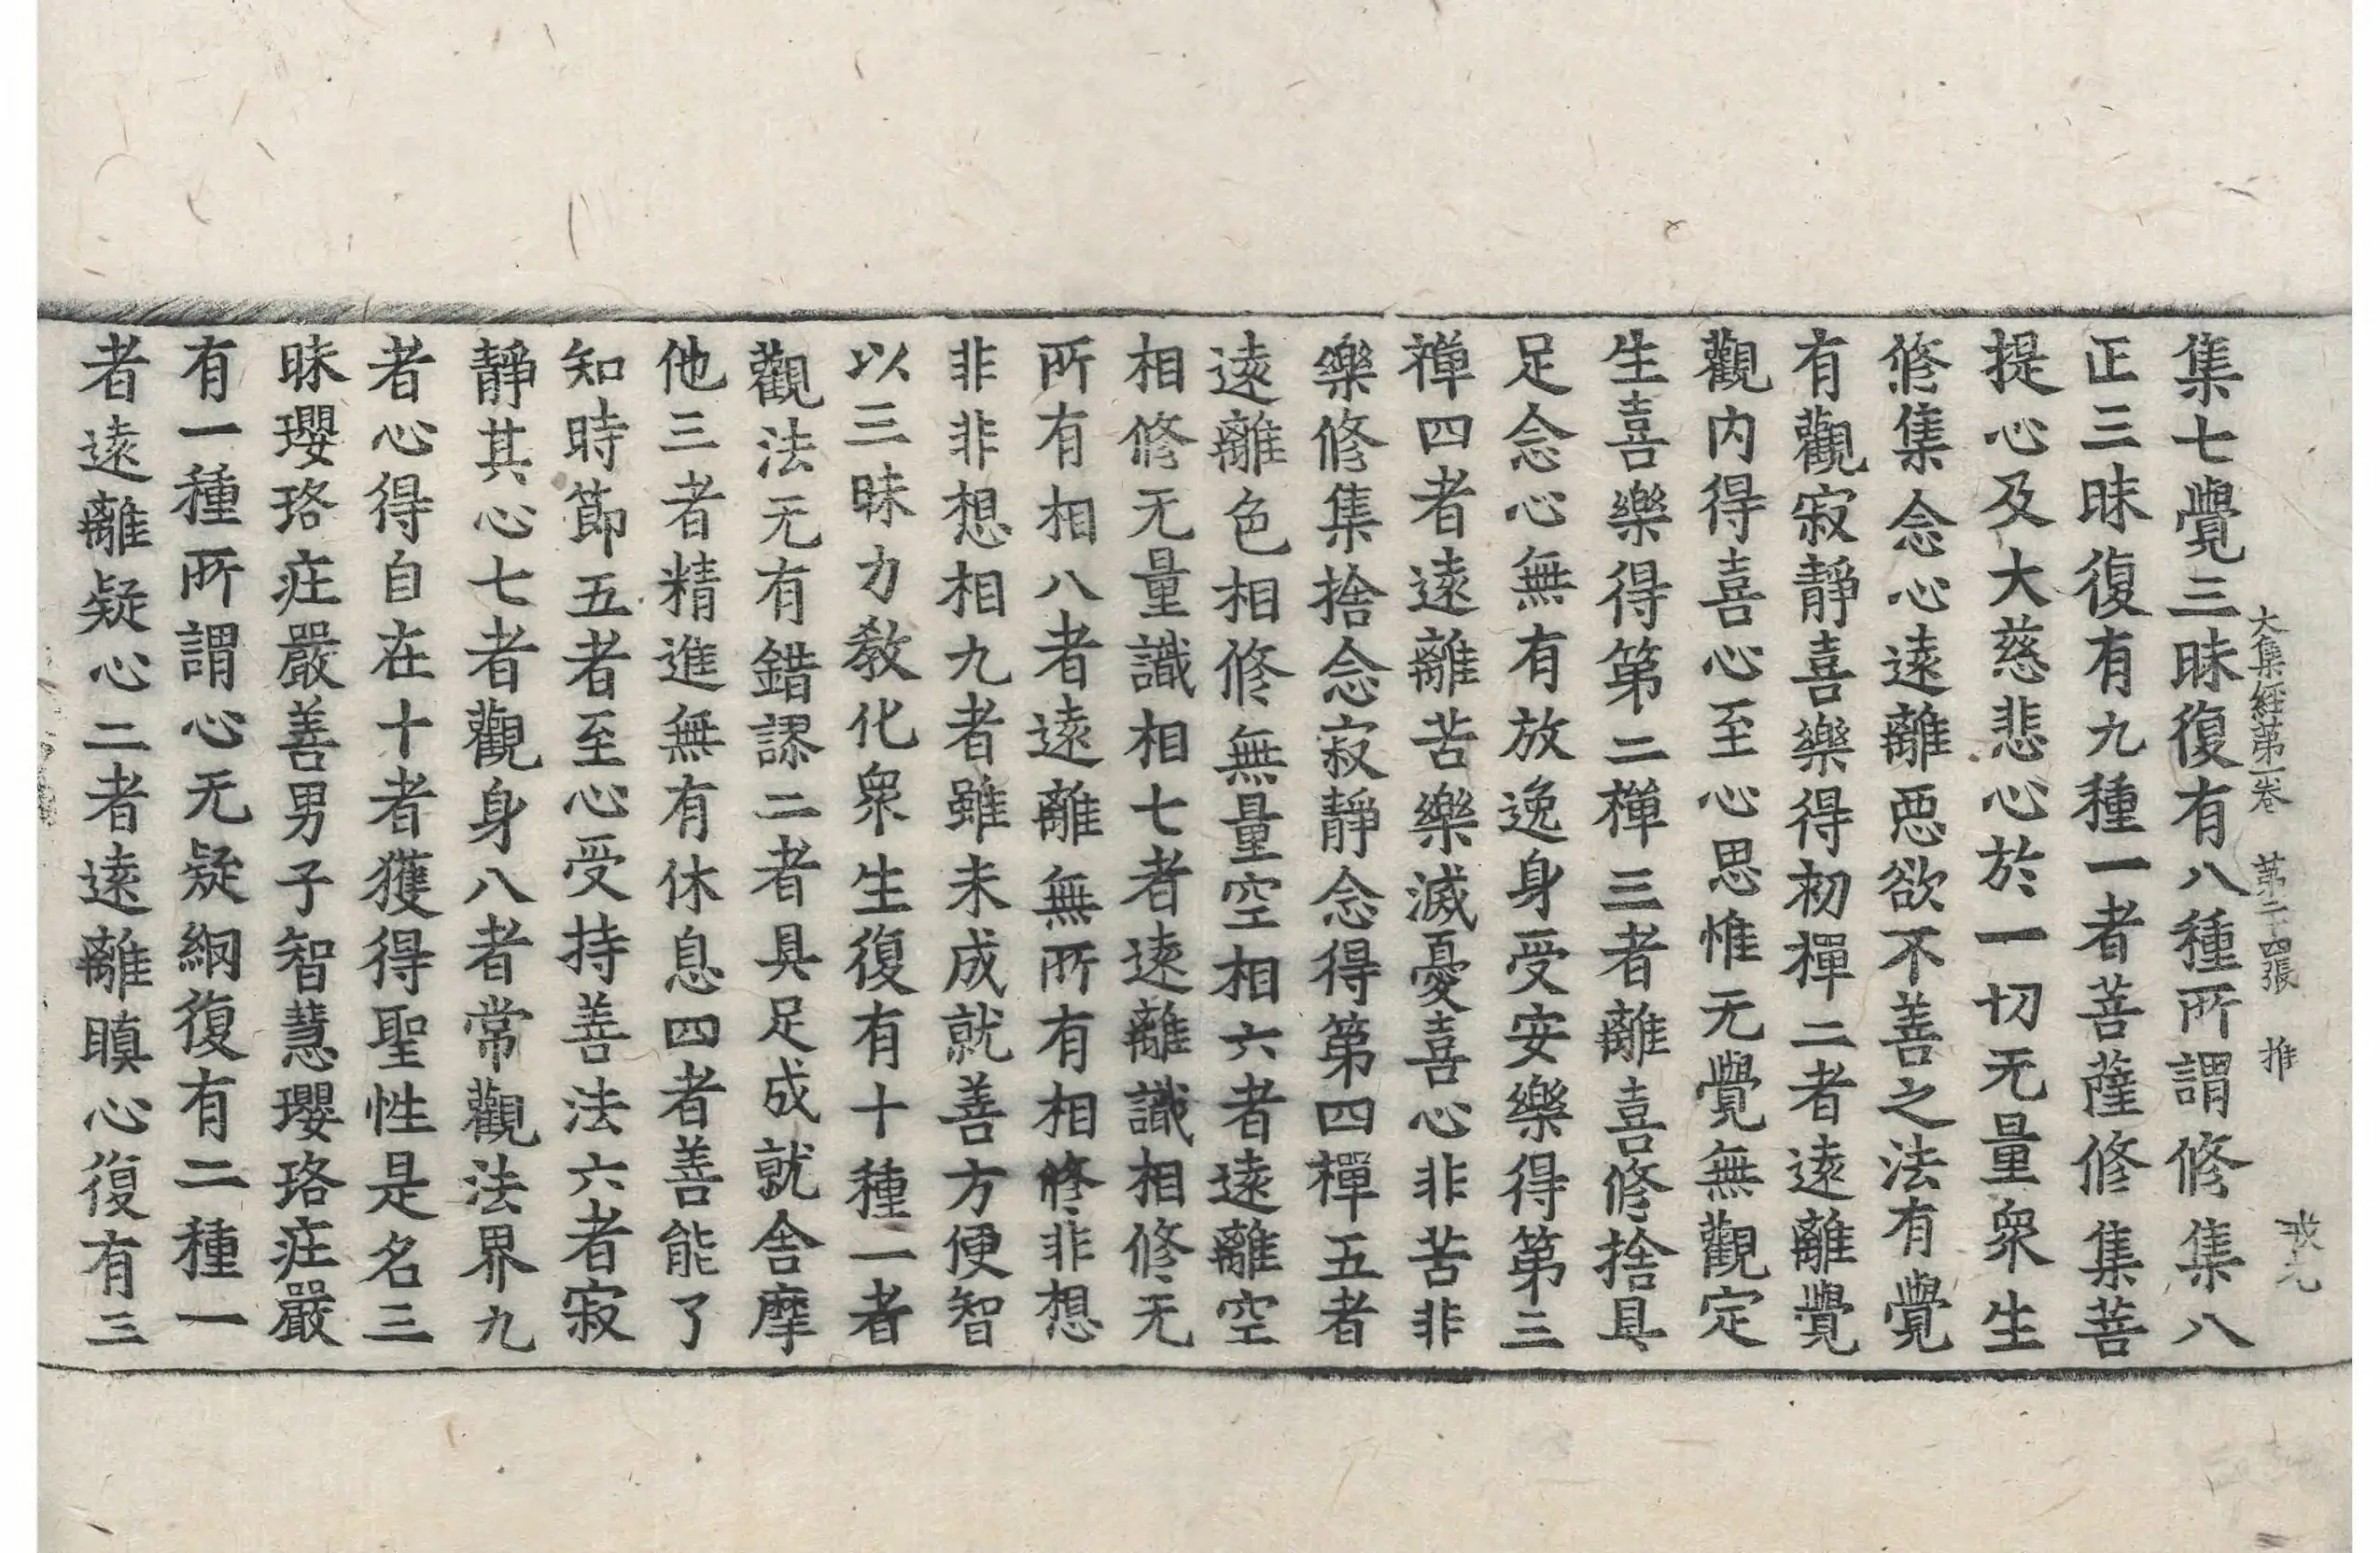 大集經第一卷 第二十四張 推 戒元
集七覺三昧復有八種所謂修集八
正三昧復有九種一者菩薩修集菩
提心及大慈悲心於一切无量衆生
修集念心遠離惡欲不善之法有覺
有觀寂靜喜樂得初禪二者遠離覺
觀内得喜心至心思惟无覺無觀定
生喜樂得第二禪三者離喜修捨具
足念心無有放逸身受安樂得第三
禪四者遠離苦樂滅憂喜心非苦非
樂修集捨念寂靜念得第四禪五者
遠離色相修無量空相六者遠離空
相修无量識相七者遠離識相修无
所有相八者遠離無所有相修非想
非非想相九者雖未成就善方便智
以三昧力教化衆生復有十種一者
觀法无有錯謬二者具足成就舍摩
他三者精進無有休息四者善能了
知時節五者至心受持善法六者寂
靜其心七者觀身八者常觀法界九
者心得自在十者獲得聖性是名三
昧瓔珞莊嚴善男子智慧瓔珞莊嚴
有一種所謂心无疑網復有二種一
者遠離疑心二者遠離瞋心復有三